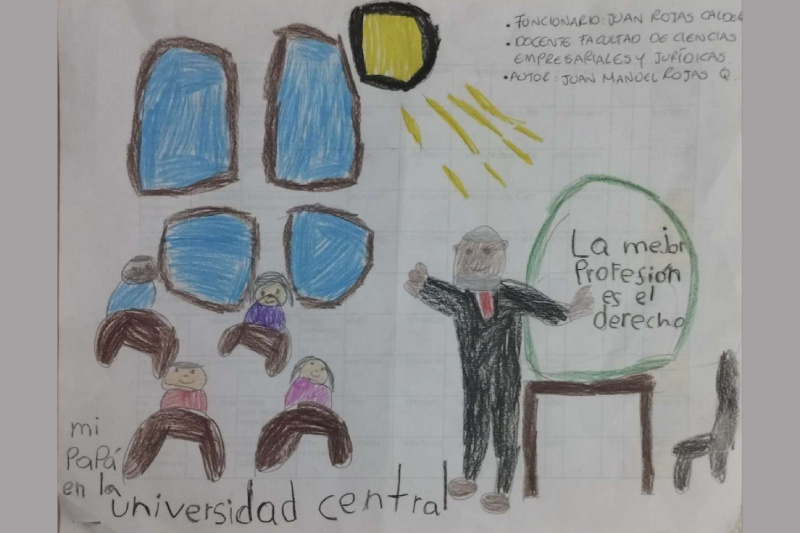 • FUNCIONARIO: JUAN ROJAS CALDER
• DOCENTE FACULTAD DE CIENCIAS
EMPRESARIALES Y JURÍDICAS.
• AUTOR: JUAN MANUEL ROJAS Q.
La mejor
Profesión
es el
derecho
mi
PaPá
en la
universidad central